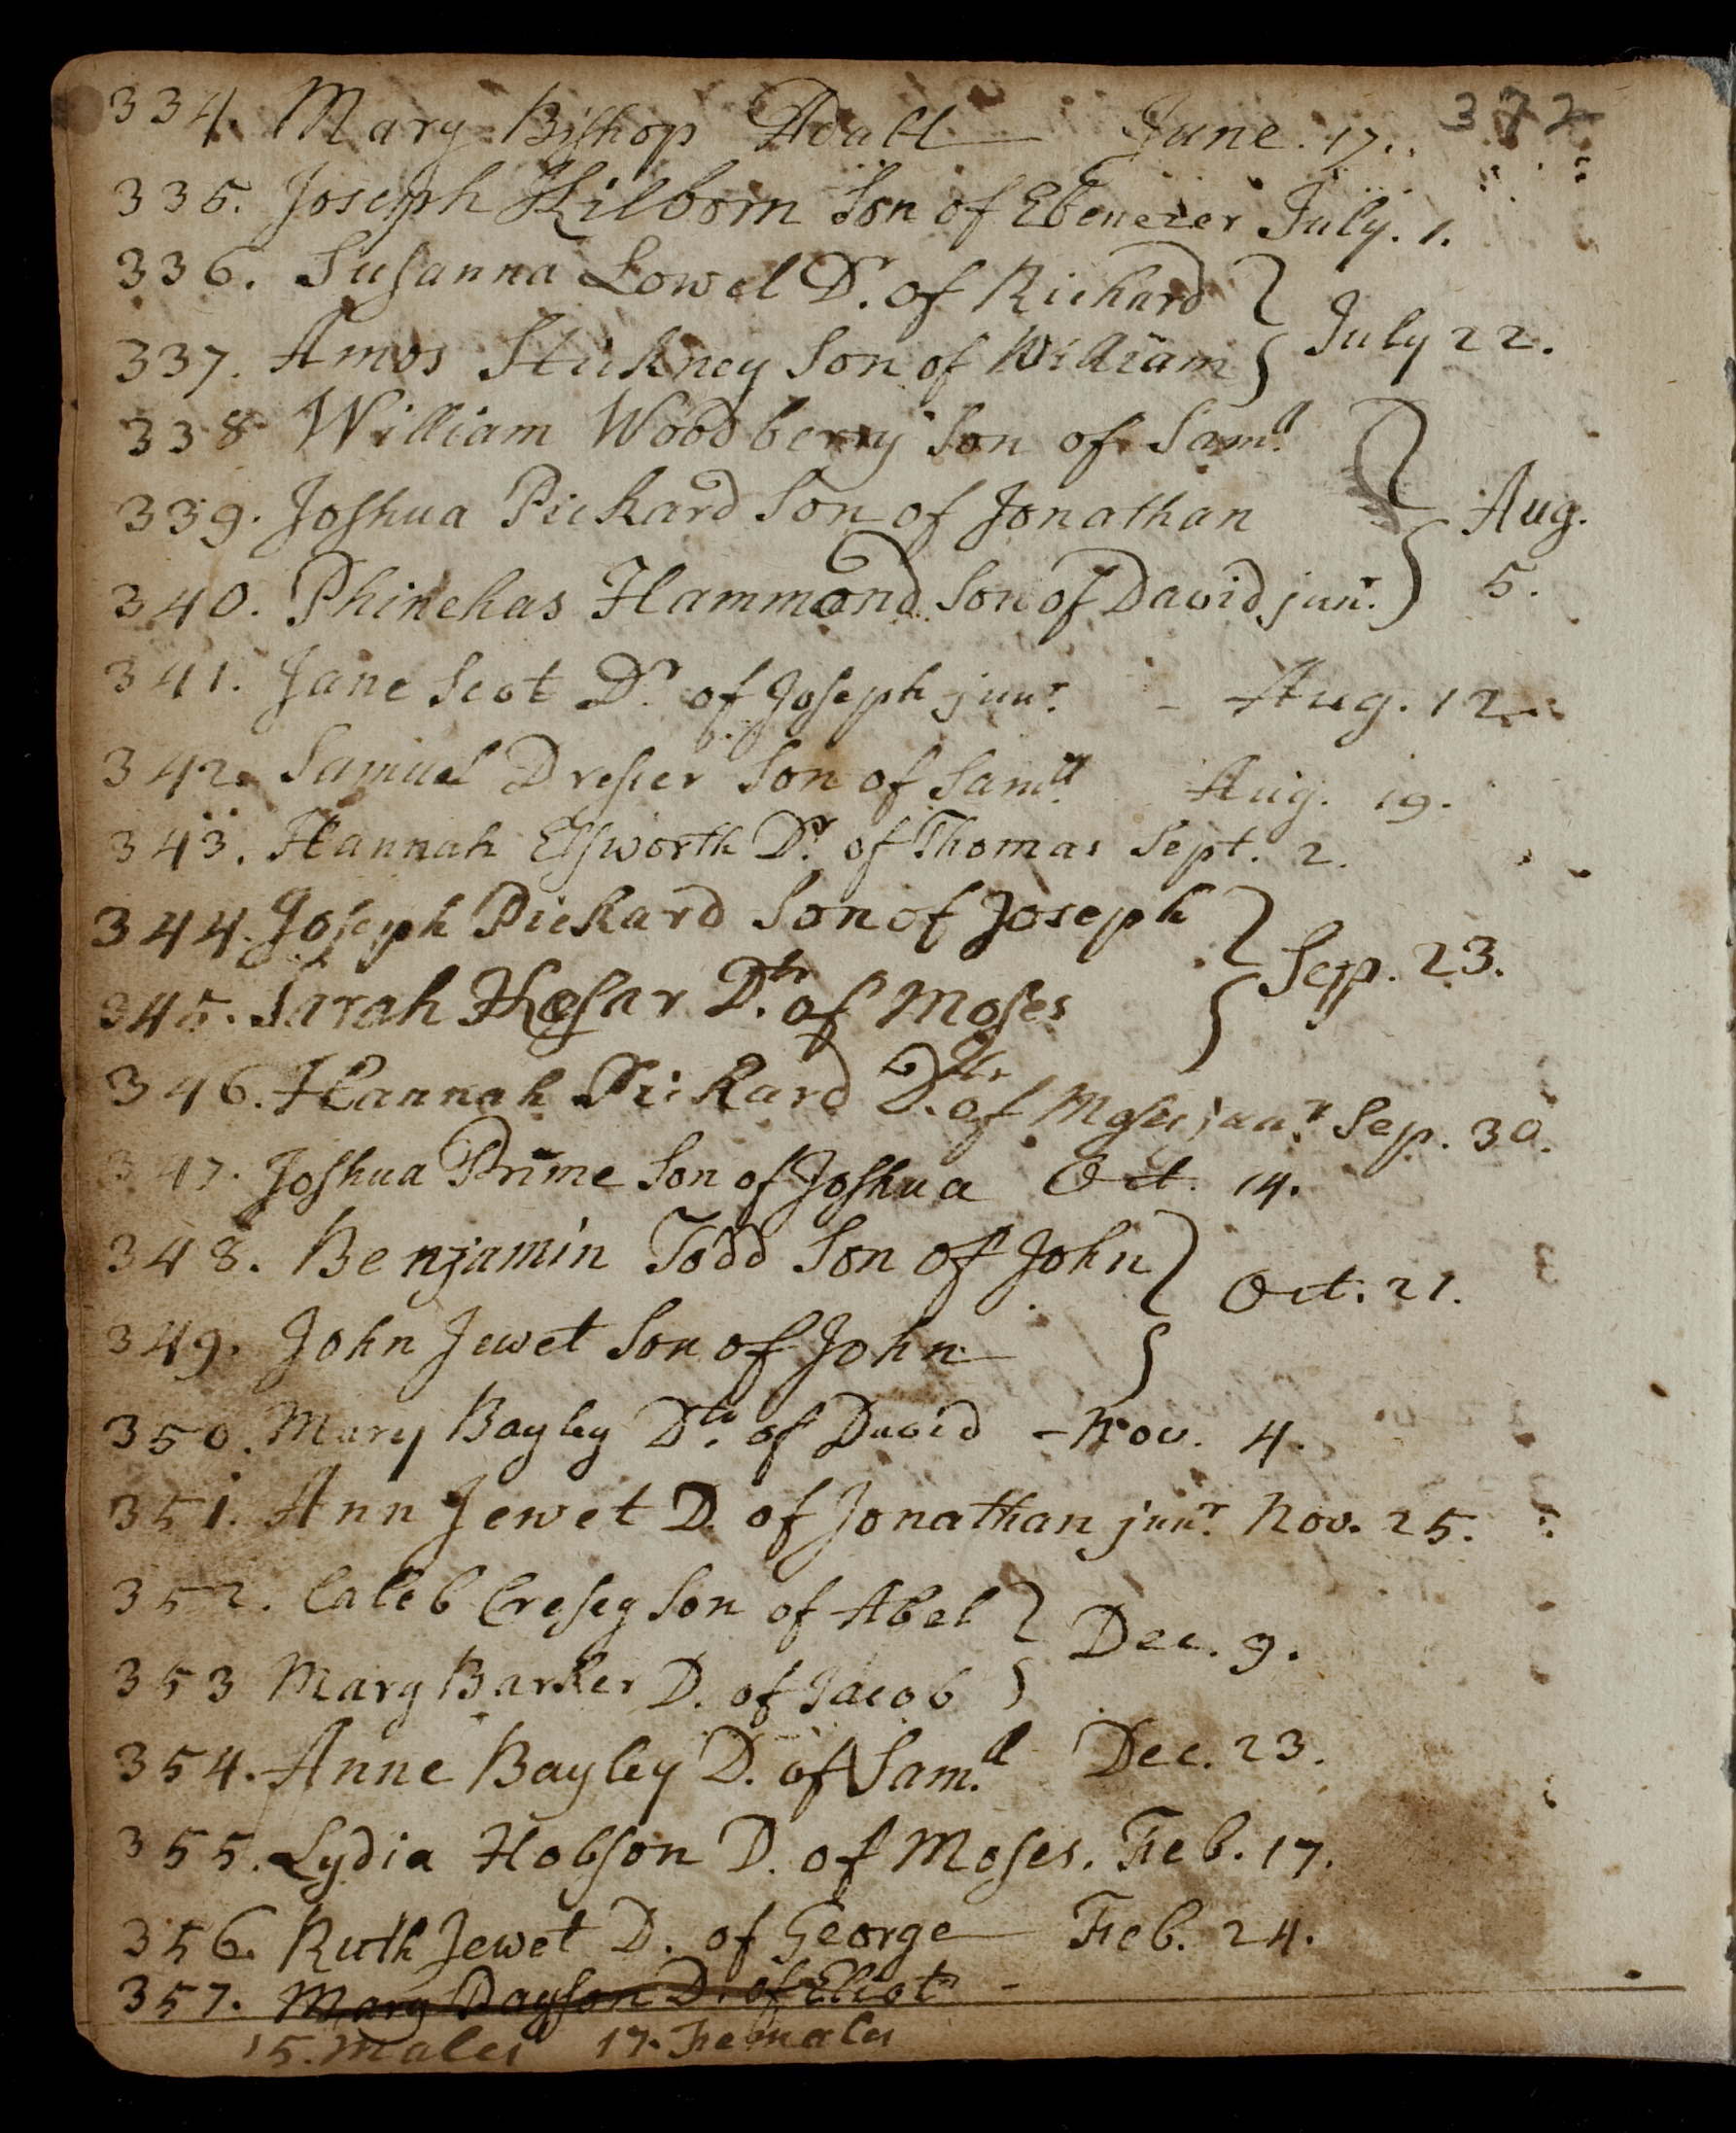 372
334. Mary Bishop Adult — June. 17.
335. Joseph Kilborn Son of Ebenezer July. 1.
336. Susanna Lowel Dr. of Richard
337. Amos Stickney Son of William } July 22.
338 William Woodberry Son of Saml.
339. Joshua Pickard Son of Jonathan } Aug.
340. Phinehas Hammond Son of David junr. 5.
341. Jane Scot Dr. of Joseph junr. - Aug. 12.
342. Samuel Dresser Son of Samll. Aug. 19.
343. Hannah Elsworth Dr. of Thomas Sept. 2.
344. Joseph Pickard Son of Joseph
345. Sarah Hesar Dtr. of Moses } Sep. 23.
346. Hannah Pickard Dtr. of Moses junr. Sep. 30.
347. Joshua Prime Son of Joshua Oct. 14.
348. Benjamin Todd Son of John
349. John Jewet Son of John } Oct. 21.
350. Mary Bayley Dtr. of David - Nov. 4.
351. Ann Jewet D. of Jonathan junr. Nov. 25.
352. Caleb Cresey Son of Abel
353 Mary Barker D. of Jacob } Dec. 9.
354. Anne Bayley D. of Saml. Dec. 23.
355. Lydia Hobson D. of Moses. Feb. 17.
356. Ruth Jewet D. of George — Feb. 24.
357. Mary Dayson D. of Eliot -
15. Males 17. Females